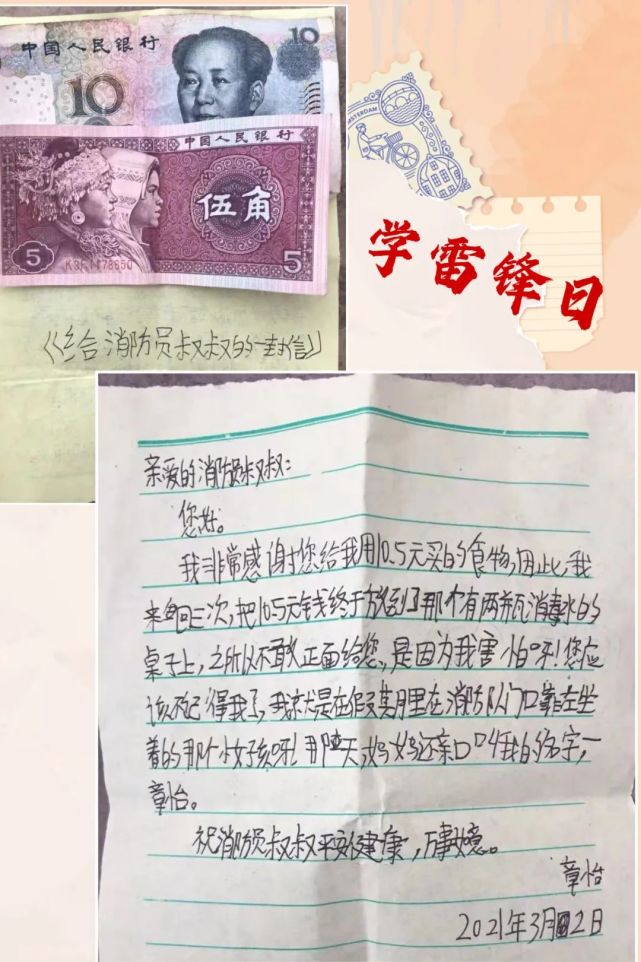 中国人民银行
10
10
中国人民银行
伍角
5
5
AMSTERDAM
学雷锋日
《给消防员叔叔的一封信》
亲爱的消防员叔叔:
您好。
我非常感谢您给我用10.5元买的食物,因此,我
来回三次,把10.5元钱终于放到了那个有两瓶消毒水的
桌子上,之所以不敢正面给您,是因为我害怕呀!您应
该不记得我了,我就是在假期里在消防队门口靠左坐
着的那个小女孩呀!那天,妈妈还亲口叫我的名字,—
章怡。
祝消防员叔叔平安健康,万事如意。
章怡
2021年3月2日